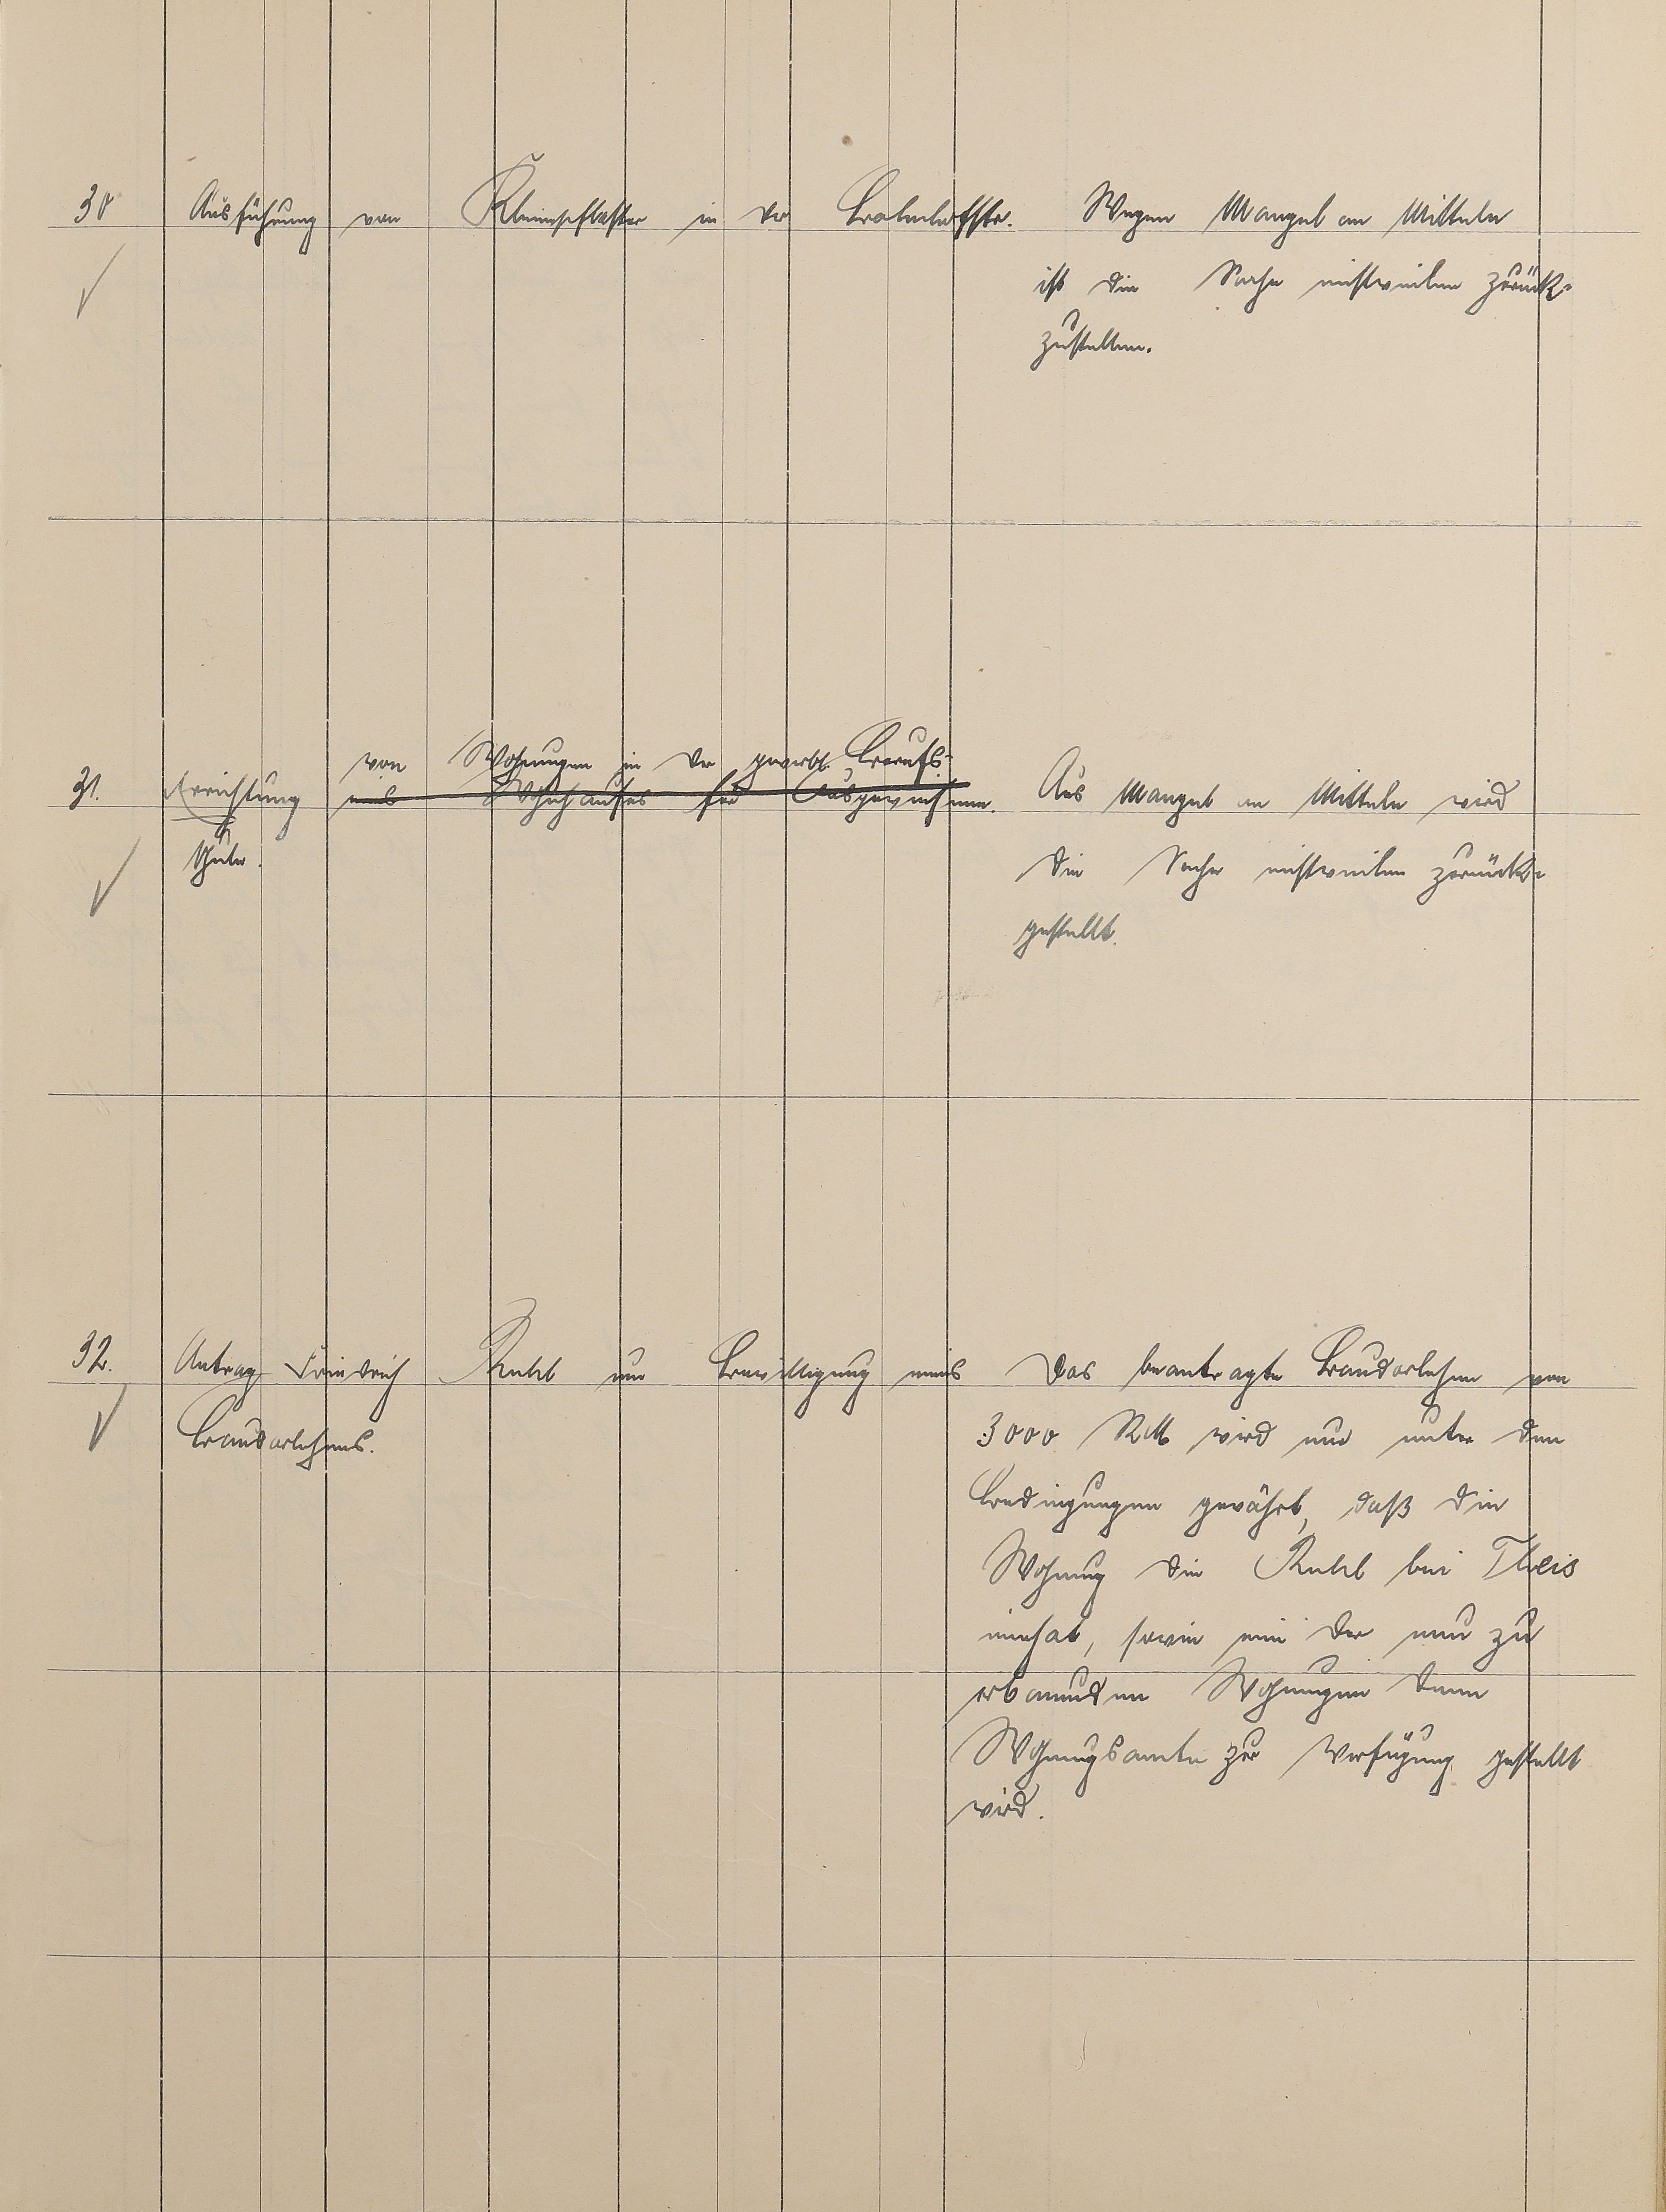 30 Ausführung von Kleinpflaster in der Bahnhofstr. Wegen Mangel an Mitteln
ist die Sache einstweilen zurück-
zustellen.
von Wohnungen in der gewerbl. Berufs-
31. Errichtung eines Wohnhauses für Ausgewiesene. Aus Mangel an Mitteln wird
schule.
die Sache einstweilen zurück-
gestellt.
32. Antrag Heinrich Ruhl um Bewilligung eines Das beantragte Baudarlehen von
Baudarlehens.
3000 RM wird nur unter den
Bedingungen gewährt, daß die
Wohnung die Ruhl bei Theis
innehat, sowie eine der neu zu
erbauenden Wohnungen dem
Wohnungsamte zur Verfügung gestellt
wird.